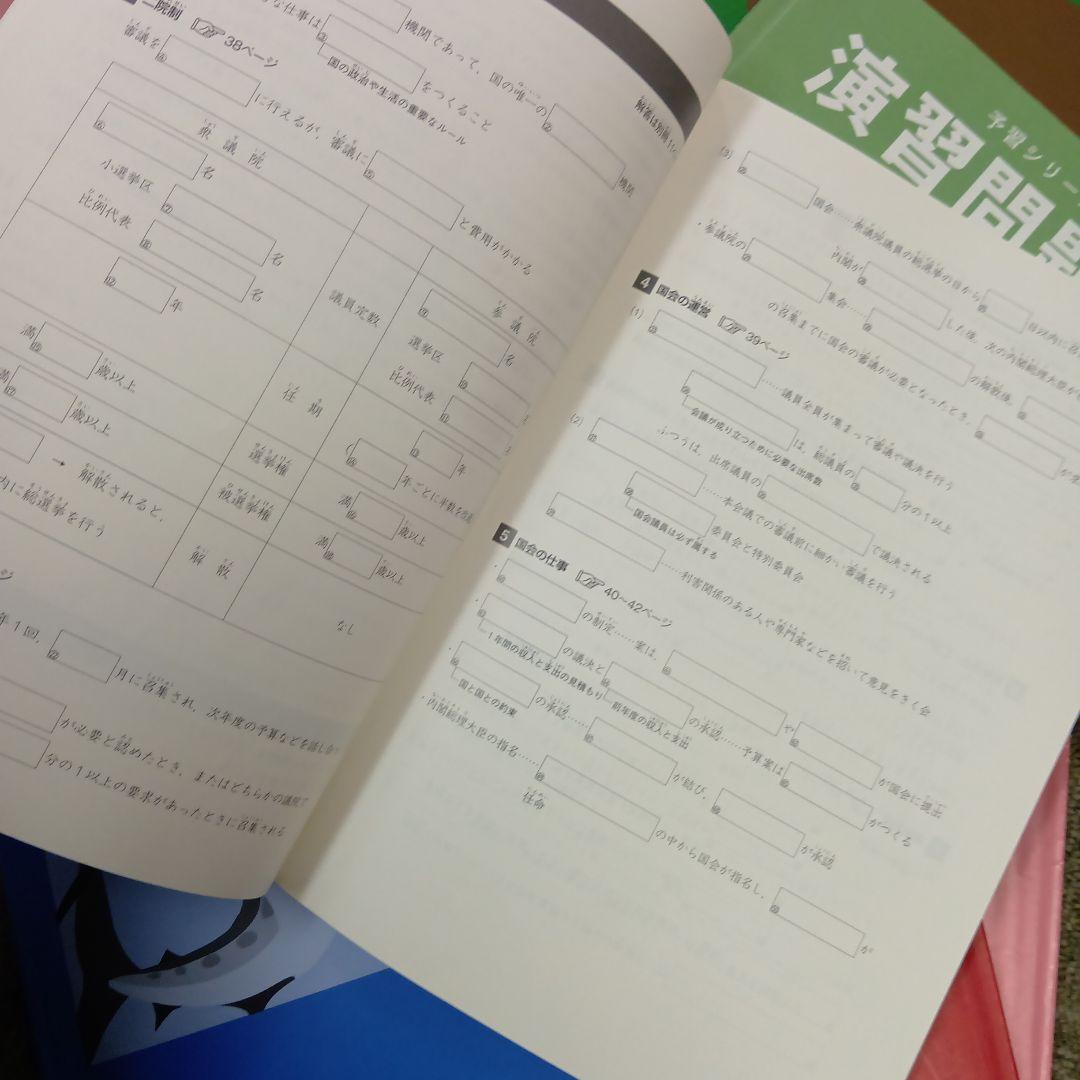 な仕事は
機関であって、国の唯一の
機関
をつくること
国の政治や生活の重要なルール
解答は別冊
二院制 38ページ
審議を
に行えるが、審議に
と費用がかかる
衆議院
名
小選挙区
名
比例代表
名
議員定数
参議院
名
選挙区
比例代表
年
任期
年
年ごとに半数を改選
満 歳以上
選挙権
満 歳以上
満 歳以上
被選挙権
満 歳以上
→ 解散されると、
内に総選挙を行う
解散
なし
ページ
年1回、 月に召集され、次年度の予算などを話し合う
が必要と認めたとき、またはどちらかの議院で
分の1以上の要求があったときに召集される
予習シリー
演習問
(3) 国会……衆議院議員の総選挙の日から 日以内に召
内閣が した後、次の内閣総理大臣が
・参議院の 集会…… の解散後、
の召集までに国会の審議が必要となったとき、
4 国会の運営 39ページ
(1) ……議員全員が集まって審議や議決を行う
は、総議員の 分の1以上
会議が成り立つために必要な出席数
ふつうは、出席議員の で議決される
(2) ……本会議での審議前に細かい審議を行う
委員会と特別委員会
国会議員は必ず属する
……利害関係のある人や専門家などを招いて意見をきく会
5 国会の仕事 40〜42ページ
・ の制定……案は、 や が国会に提出
・ の議決と の承認……予算案は がつくる
1年間の収入と支出の見積もり 前年度の収入と支出
・ の承認…… が結び、 が承認
国と国との約束
・内閣総理大臣の指名…… の中から国会が指名し、 が
任命